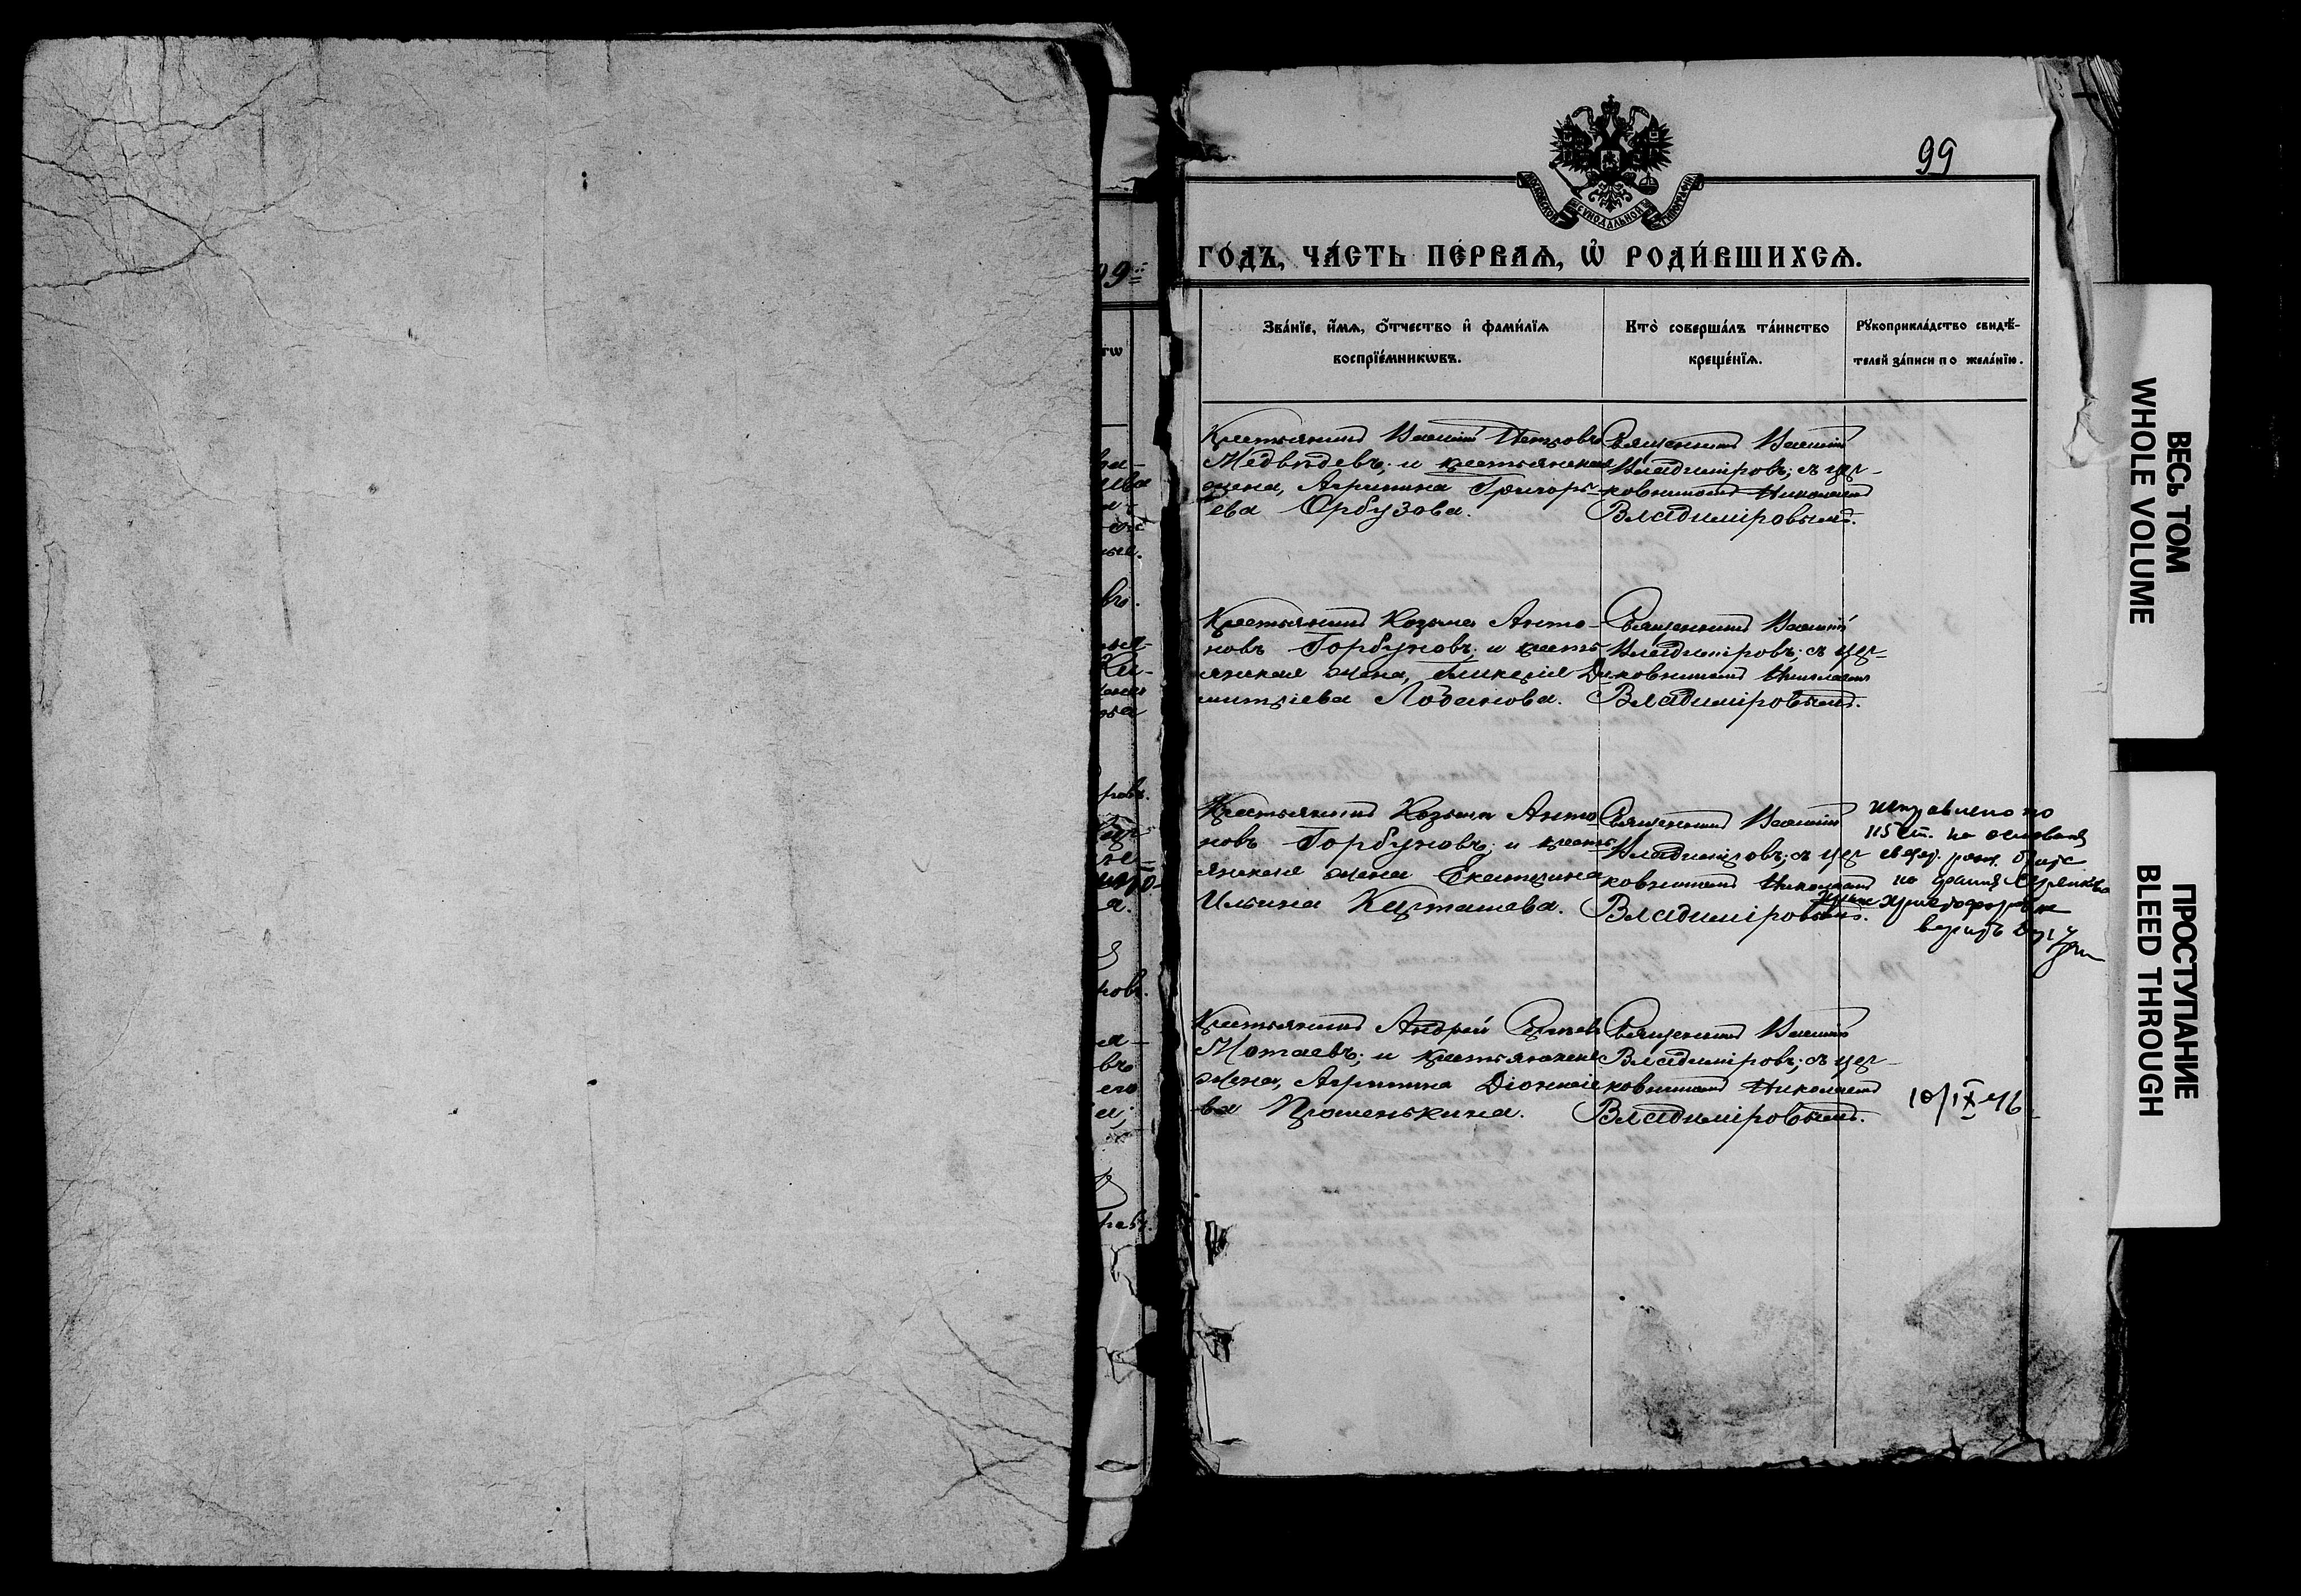 99
МОСКОВСКОЙ СѴНОДАЛЬНОЙ ТИПОГРАФІИ
ГО́ДЪ, ЧА́СТЬ ПЕ́РВАѦ, Ѡ҆ РОДИ́ВШИХСѦ.
Зва́нїе, и҆́мѧ, ѻ҆́тчество и҆ фами́лїѧ
воспрїе́мникѡвъ.
Кто̀ соверша́лъ та́инство
креще́нїѧ.
Рꙋкоприкла́дство свидѣ́-
телей за́писи по жела́нїю.
Крестьянинъ Василій Петровъ
Медвѣдевъ; и крестьянская
жена, Агрипина Григорь-
ева Орбузова.
Священникъ Василій
Владиміровъ; съ цер-
ковникомъ Николаемъ
Владиміровымъ.
Крестьянинъ Козьма Анто-
новъ Горбуновъ; и кресть-
янская жена, Гликерія Ди-
митріева Лобанова.
Священникъ Василій
Владиміровъ; съ цер-
ковникомъ Николаемъ
Владиміровымъ.
Крестьянинъ Козьма Анто-
новъ Горбуновъ; и кресть-
янская жена Екатерина
Ильина Карташева.
Священникъ Василій
Владиміровъ; съ цер-
ковникомъ Николаемъ
Владиміровымъ.
Исправлено по
115 ст. на основан
на
верить
Крестьянинъ Андрей Сергѣевъ
Мотаевъ; и крестьянская
жена, Агрипина Діонисіе-
ва Прошенькина.
Священникъ Василій
Владиміровъ; съ цер-
ковникомъ Николаемъ
Владиміровымъ.
10/IX 46
ВЕСЬ ТОМ
WHOLE VOLUME
ПРОСТУПАНИЕ
BLEED THROUGH